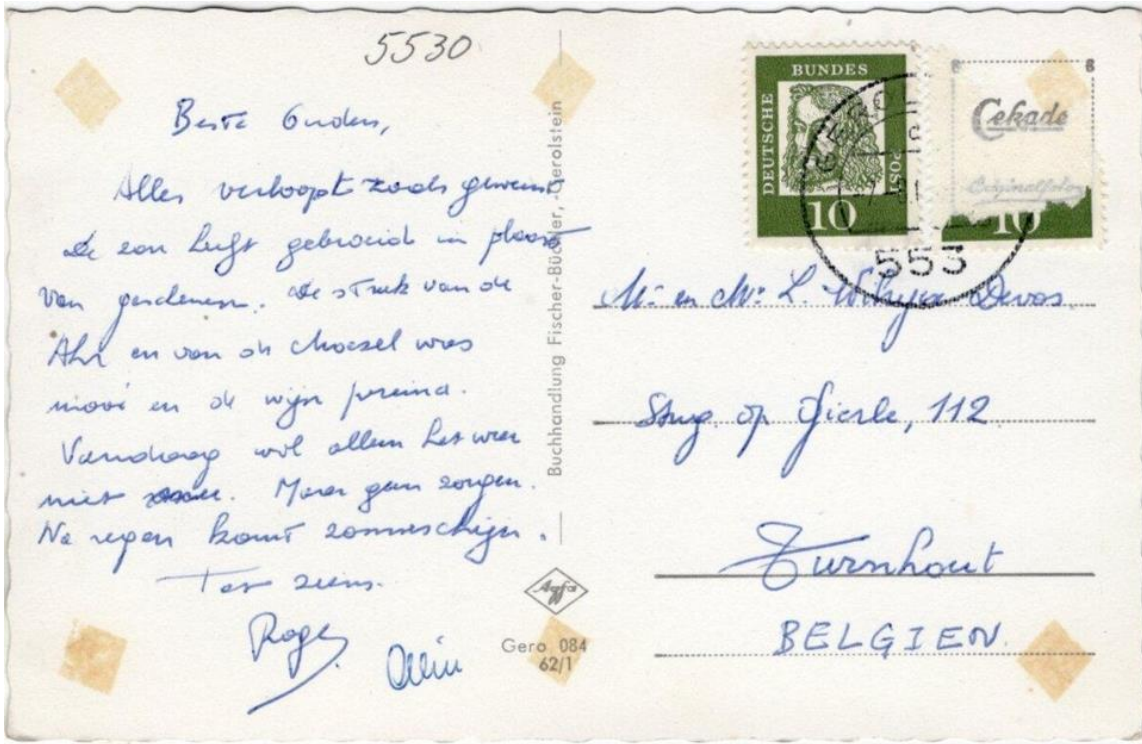 5530
Beste Ouders,
Alles verloopt zoals gewenst
de zon heeft gebroeid in plaats
van geschenen. De streek van de
Ahr en van de Moezel was
mooi en de wijn prima.
Vandaag wil alleen het weer
niet. Maar geen zorgen.
Na regen komt zonneschijn.
Tot ziens.
Roger
Buchhandlung Fischer-Büchler, Gerolstein
Agfa
Gero 084
62/1
DEUTSCHE BUNDESPOST
10
Cekade
Originalfoto
10
553
Mr en Mw L. Devos
Stwg. op Gierle, 112
Turnhout
BELGIEN